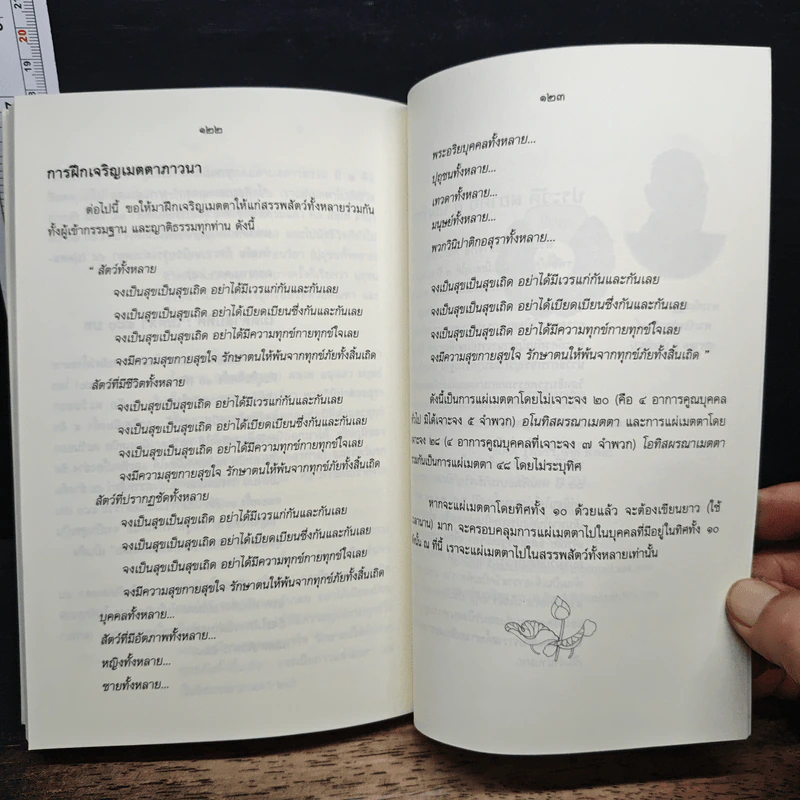 20
19
18
๑๒๒
การฝึกเจริญเมตตาภาวนา
ต่อไปนี้ ขอให้มาฝึกเจริญเมตตาให้แก่สรรพสัตว์ทั้งหลายร่วมกัน
ทั้งผู้เข้ากรรมฐาน และญาติธรรมทุกท่าน ดังนี้
“ สัตว์ทั้งหลาย
จงเป็นสุขเป็นสุขเถิด อย่าได้มีเวรแก่กันและกันเลย
จงเป็นสุขเป็นสุขเถิด อย่าได้เบียดเบียนซึ่งกันและกันเลย
จงเป็นสุขเป็นสุขเถิด อย่าได้มีความทุกข์กายทุกข์ใจเลย
จงมีความสุขกายสุขใจ รักษาตนให้พ้นจากทุกข์ภัยทั้งสิ้นเถิด
สัตว์ที่มีชีวิตทั้งหลาย
จงเป็นสุขเป็นสุขเถิด อย่าได้มีเวรแก่กันและกันเลย
จงเป็นสุขเป็นสุขเถิด อย่าได้เบียดเบียนซึ่งกันและกันเลย
จงเป็นสุขเป็นสุขเถิด อย่าได้มีความทุกข์กายทุกข์ใจเลย
จงมีความสุขกายสุขใจ รักษาตนให้พ้นจากทุกข์ภัยทั้งสิ้นเถิด
สัตว์ที่ปรากฏชัดทั้งหลาย
จงเป็นสุขเป็นสุขเถิด อย่าได้มีเวรแก่กันและกันเลย
จงเป็นสุขเป็นสุขเถิด อย่าได้เบียดเบียนซึ่งกันและกันเลย
จงเป็นสุขเป็นสุขเถิด อย่าได้มีความทุกข์กายทุกข์ใจเลย
จงมีความสุขกายสุขใจ รักษาตนให้พ้นจากทุกข์ภัยทั้งสิ้นเถิด
บุคคลทั้งหลาย...
สัตว์ที่มีอัตภาพทั้งหลาย...
หญิงทั้งหลาย...
ชายทั้งหลาย...
๑๒๓
พระอริยบุคคลทั้งหลาย...
ปุถุชนทั้งหลาย...
เทวดาทั้งหลาย...
มนุษย์ทั้งหลาย...
พวกวินิปาติกอสุราทั้งหลาย...
จงเป็นสุขเป็นสุขเถิด อย่าได้มีเวรแก่กันและกันเลย
จงเป็นสุขเป็นสุขเถิด อย่าได้เบียดเบียนซึ่งกันและกันเลย
จงเป็นสุขเป็นสุขเถิด อย่าได้มีความทุกข์กายทุกข์ใจเลย
จงมีความสุขกายสุขใจ รักษาตนให้พ้นจากทุกข์ภัยทั้งสิ้นเถิด ”
ดังนี้เป็นการแผ่เมตตาโดยไม่เจาะจง ๒๐ (คือ ๔ อาการคูณบุคคล
มิได้เจาะจง ๕ จำพวก) อโนทิสผรณาเมตตา และการแผ่เมตตาโดย
เจาะจง ๒๘ (๔ อาการคูณบุคคลที่เจาะจง ๗ จำพวก) โอทิสผรณาเมตตา
รวมกันเป็นการแผ่เมตตา ๔๘ โดยไม่ระบุทิศ
หากจะแผ่เมตตาโดยทิศทั้ง ๑๐ ด้วยแล้ว จะต้องเขียนยาว (ใช้
มาก จะครอบคลุมการแผ่เมตตาไปในบุคคลที่มีอยู่ในทิศทั้ง ๑๐
ณ ที่นี้ เราจะแผ่เมตตาไปในสรรพสัตว์ทั้งหลายเท่านั้น